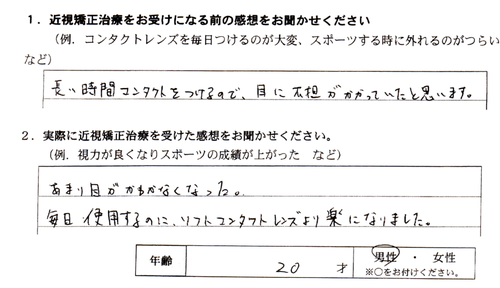 1．近視矯正治療をお受けになる前の感想をお聞かせください
（例．コンタクトレンズを毎日つけるのが大変、スポーツする時に外れるのがつらい
など）
長い時間コンタクトをつけるので、目に不担がかかっていたと思います。
2．実際に近視矯正治療を受けた感想をお聞かせください。
（例．視力が良くなりスポーツの成績が上がった　など）
あまり目がかわかなくなった。
毎日使用するのに、ソフトコンタクトレンズより楽になりました。
年齢　20　才　男性　・　女性
※○をお付けください。